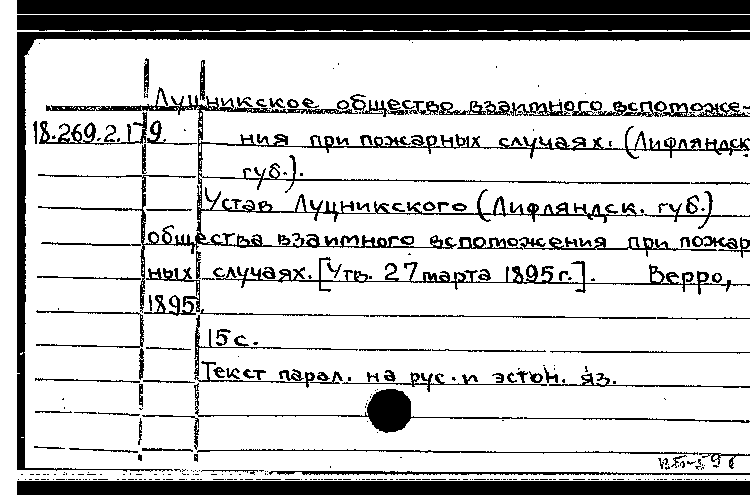 Луцникское общество взаимного вспоможе-
18.269.2.179. ния при пожарных случаях. (Лифляндск
губ.).
Устав Луцникского (Лифляндск. губ.)
общества взаимного вспоможения при пожар
ных случаях. [Утв. 27 марта 1895 г.]. Верро,
1895.
15 с.
Текст парал. на рус. и эстон. яз.